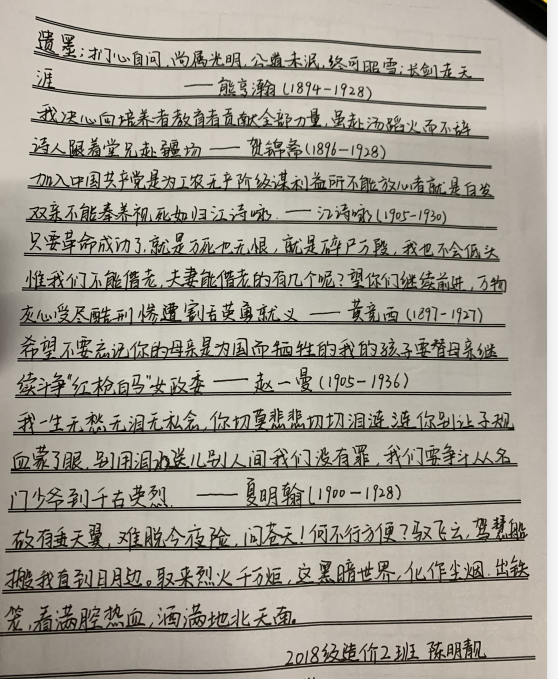 遗墨:扪心自问,尚属光明,公道未泯,终可昭雪;长剑走天
涯 ——熊亨瀚(1894-1928)
我决心向培养者教育者贡献全部力量,虽赴汤蹈火而不辞
诗人跟着堂兄赴疆场——贺锦斋(1896-1928)
加入中国共产党是为工农无产阶级谋利益所不能放心者就是白发
双亲不能奉养视死如归江诗咏.——江诗咏(1905-1930)
只要革命成功了,就是万死也无恨,就是碎尸万段,我也不会低头
惟我们不能偕老,夫妻能偕老的有几个呢?望你们继续前进,万物
灰心受尽酷刑惨遭割舌英勇就义 ——黄竞西(1897-1927)
希望不要忘记你的母亲是为国而牺牲的我的孩子要替母亲继
续斗争"红枪白马"女政委——赵一曼(1905-1936)
我一生无愁无泪无私念,你切莫悲悲切切泪涟涟你别让子规
血蒙了眼,别用泪水送儿别人间我们没有罪,我们要争斗从名
门少爷到千古英烈 ——夏明翰(1900-1928)
欲有垂天翼,难脱今夜险,问苍天!何不行方便?驭飞云,驾慧船
搬我直到日月边。取来烈火千万炬,这黑暗世界,化作尘烟.出铁
笼,看满腔热血,洒满地北天面。
2018级造价2班 陈明靓